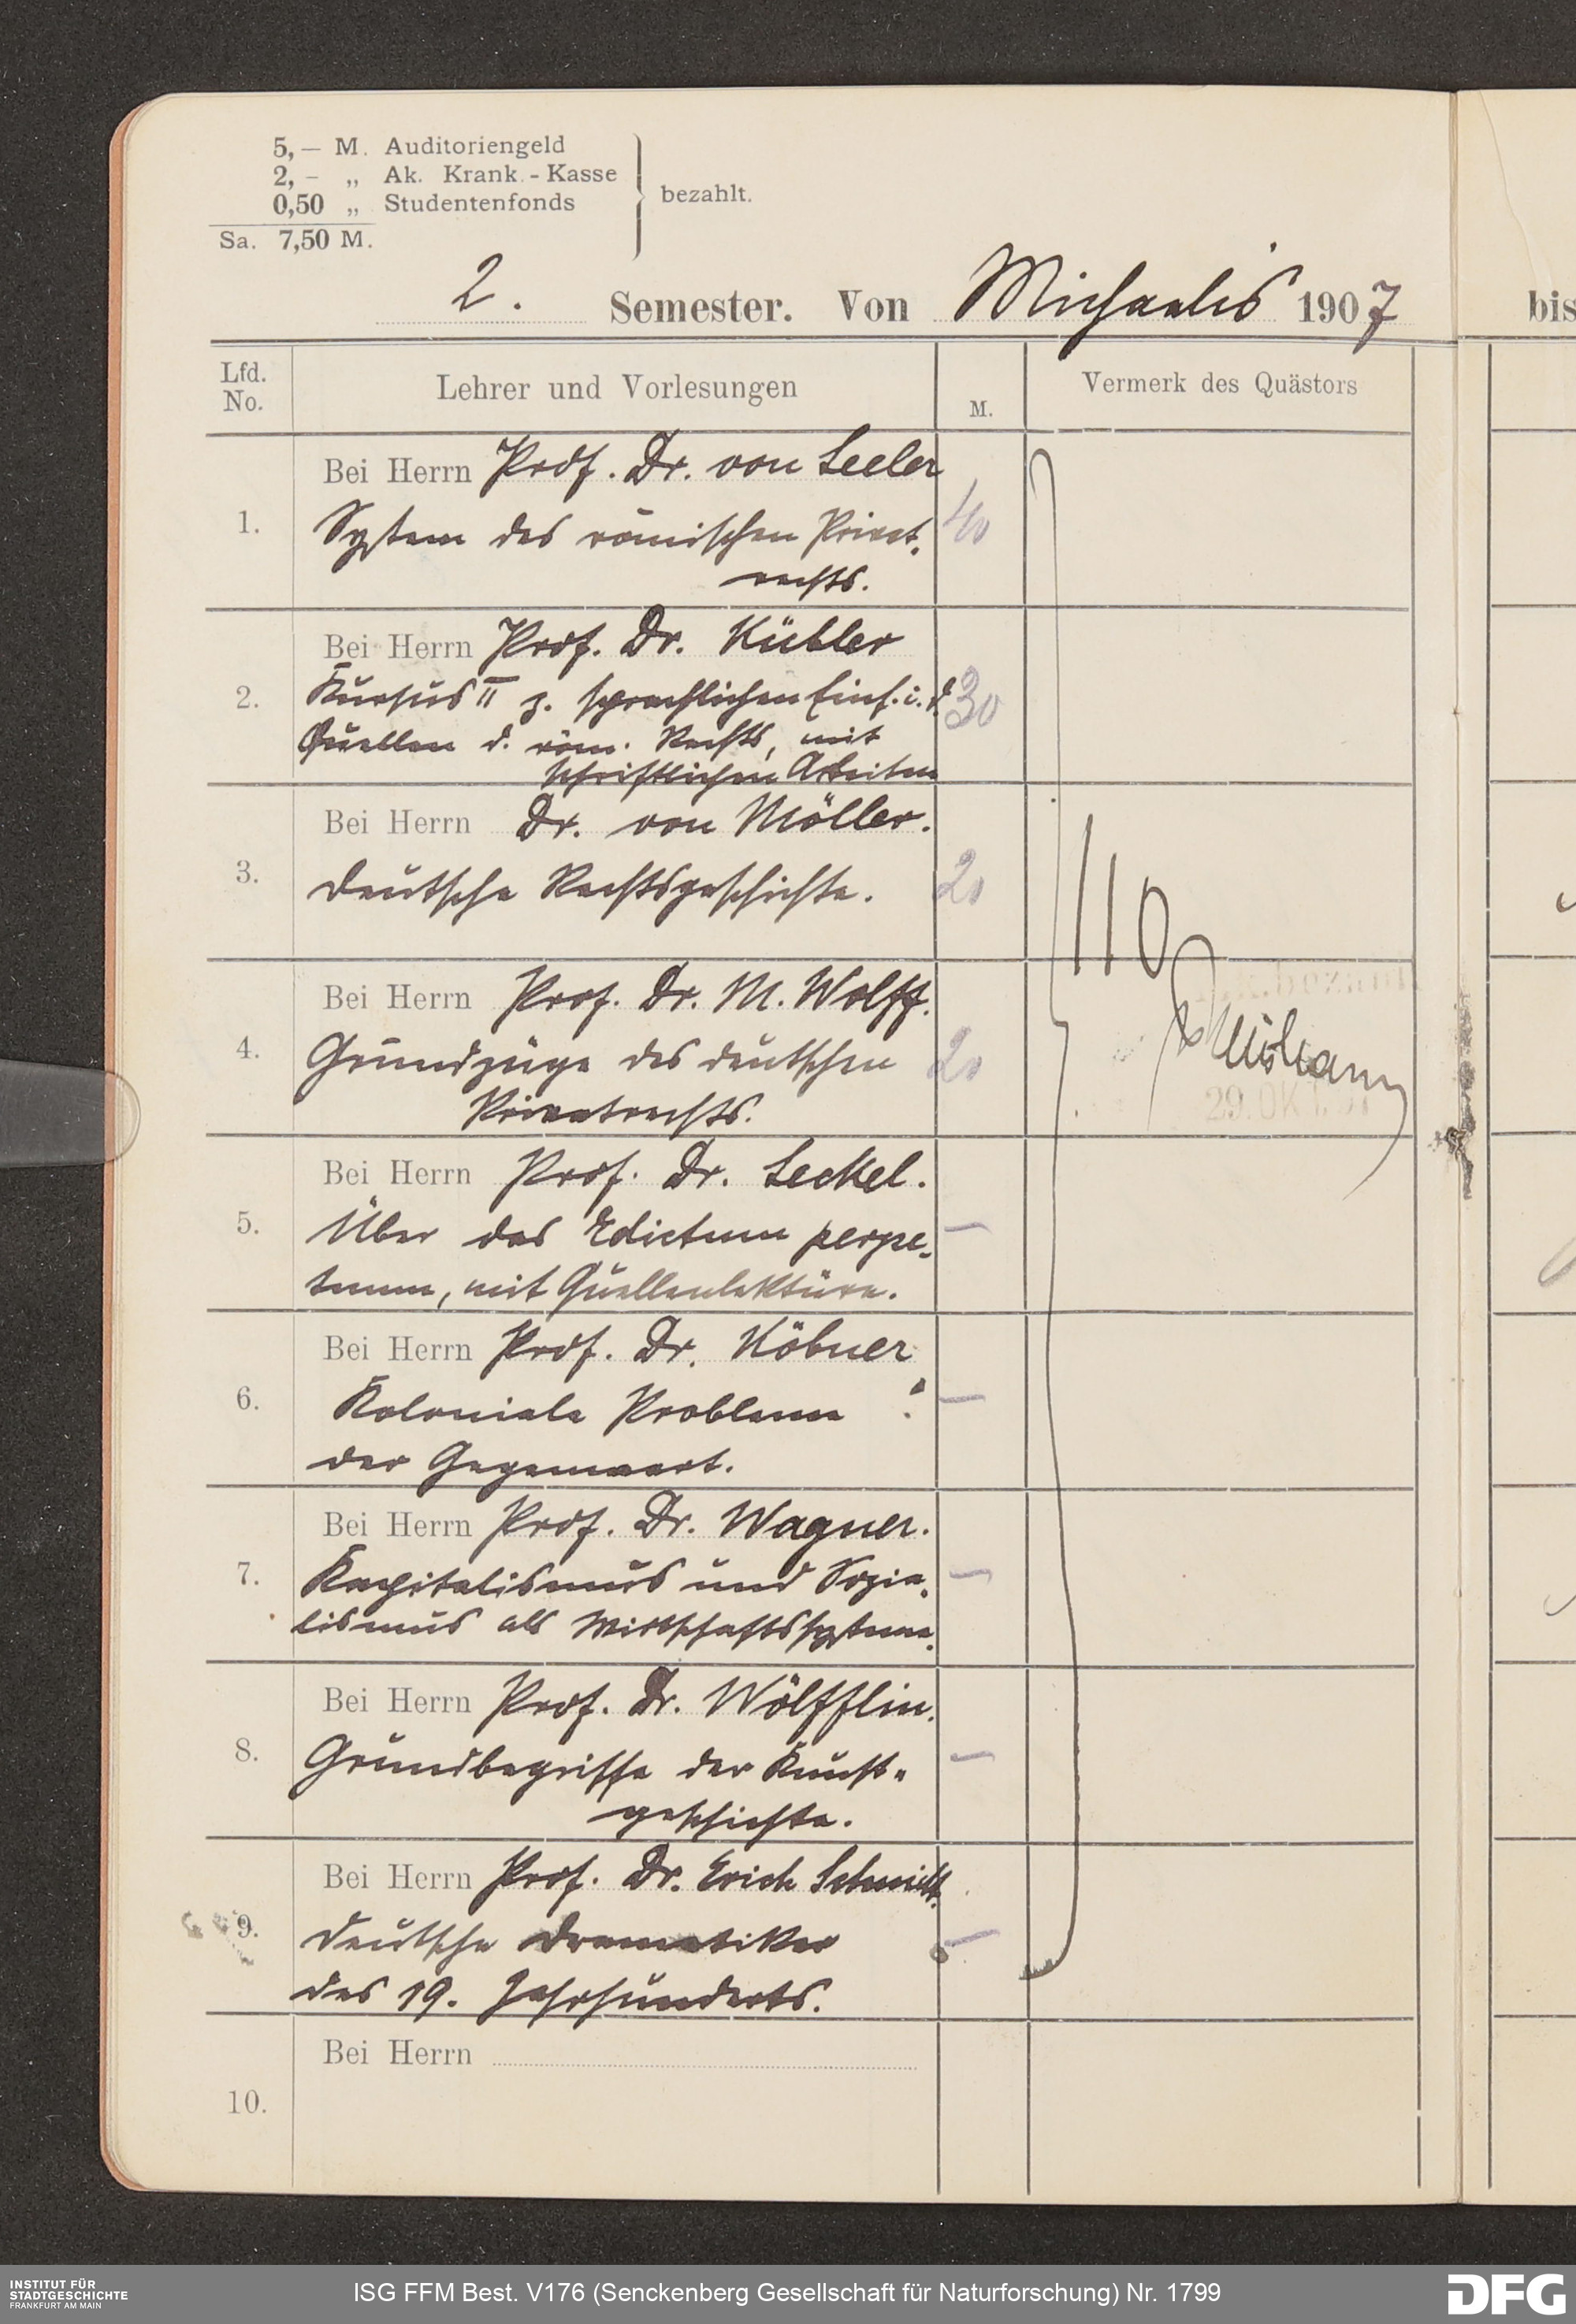 5,— M. Auditoriengeld
2,– „ Ak. Krank.-Kasse
0,50 „ Studentenfonds
bezahlt.
Sa. 7,50 M.
2. Semester. Von Michaelis 1907
bis
Lfd. No.
Lehrer und Vorlesungen
M.
Vermerk des Quästors
Bei Herrn Prof. Dr. von Seeler
1. System des römischen Privat-
rechts.
40
Bei Herrn Prof. Dr. Kübler
2. Kursus II z. sprachlichen Einf. i. d.
Quellen d. röm. Rechts, mit
schriftlichen Arbeiten
30
Bei Herrn Dr. von Möller.
3. Deutsche Rechtsgeschichte.
20
110
Bei Herrn Prof. Dr. M. Wolff.
4. Grundzüge des deutschen
Privatrechts.
20
29. OKT. 07
Bei Herrn Prof. Dr. Seckel.
5. Über das Edictum perpe-
tuum, mit Quellenlektüre.
—
Bei Herrn Prof. Dr. Köbner
6. Koloniale Probleme
der Gegenwart.
—
Bei Herrn Prof. Dr. Wagner.
7. Kapitalismus und Sozia-
lismus als Wirtschaftssysteme.
—
Bei Herrn Prof. Dr. Wölfflin.
8. Grundbegriffe der Kunst-
geschichte.
—
Bei Herrn Prof. Dr. Erich Schmidt.
9. Deutsche Dramatiker
des 19. Jahrhunderts.
—
Bei Herrn
10.
INSTITUT FÜR
STADTGESCHICHTE
FRANKFURT AM MAIN
ISG FFM Best. V176 (Senckenberg Gesellschaft für Naturforschung) Nr. 1799
DFG